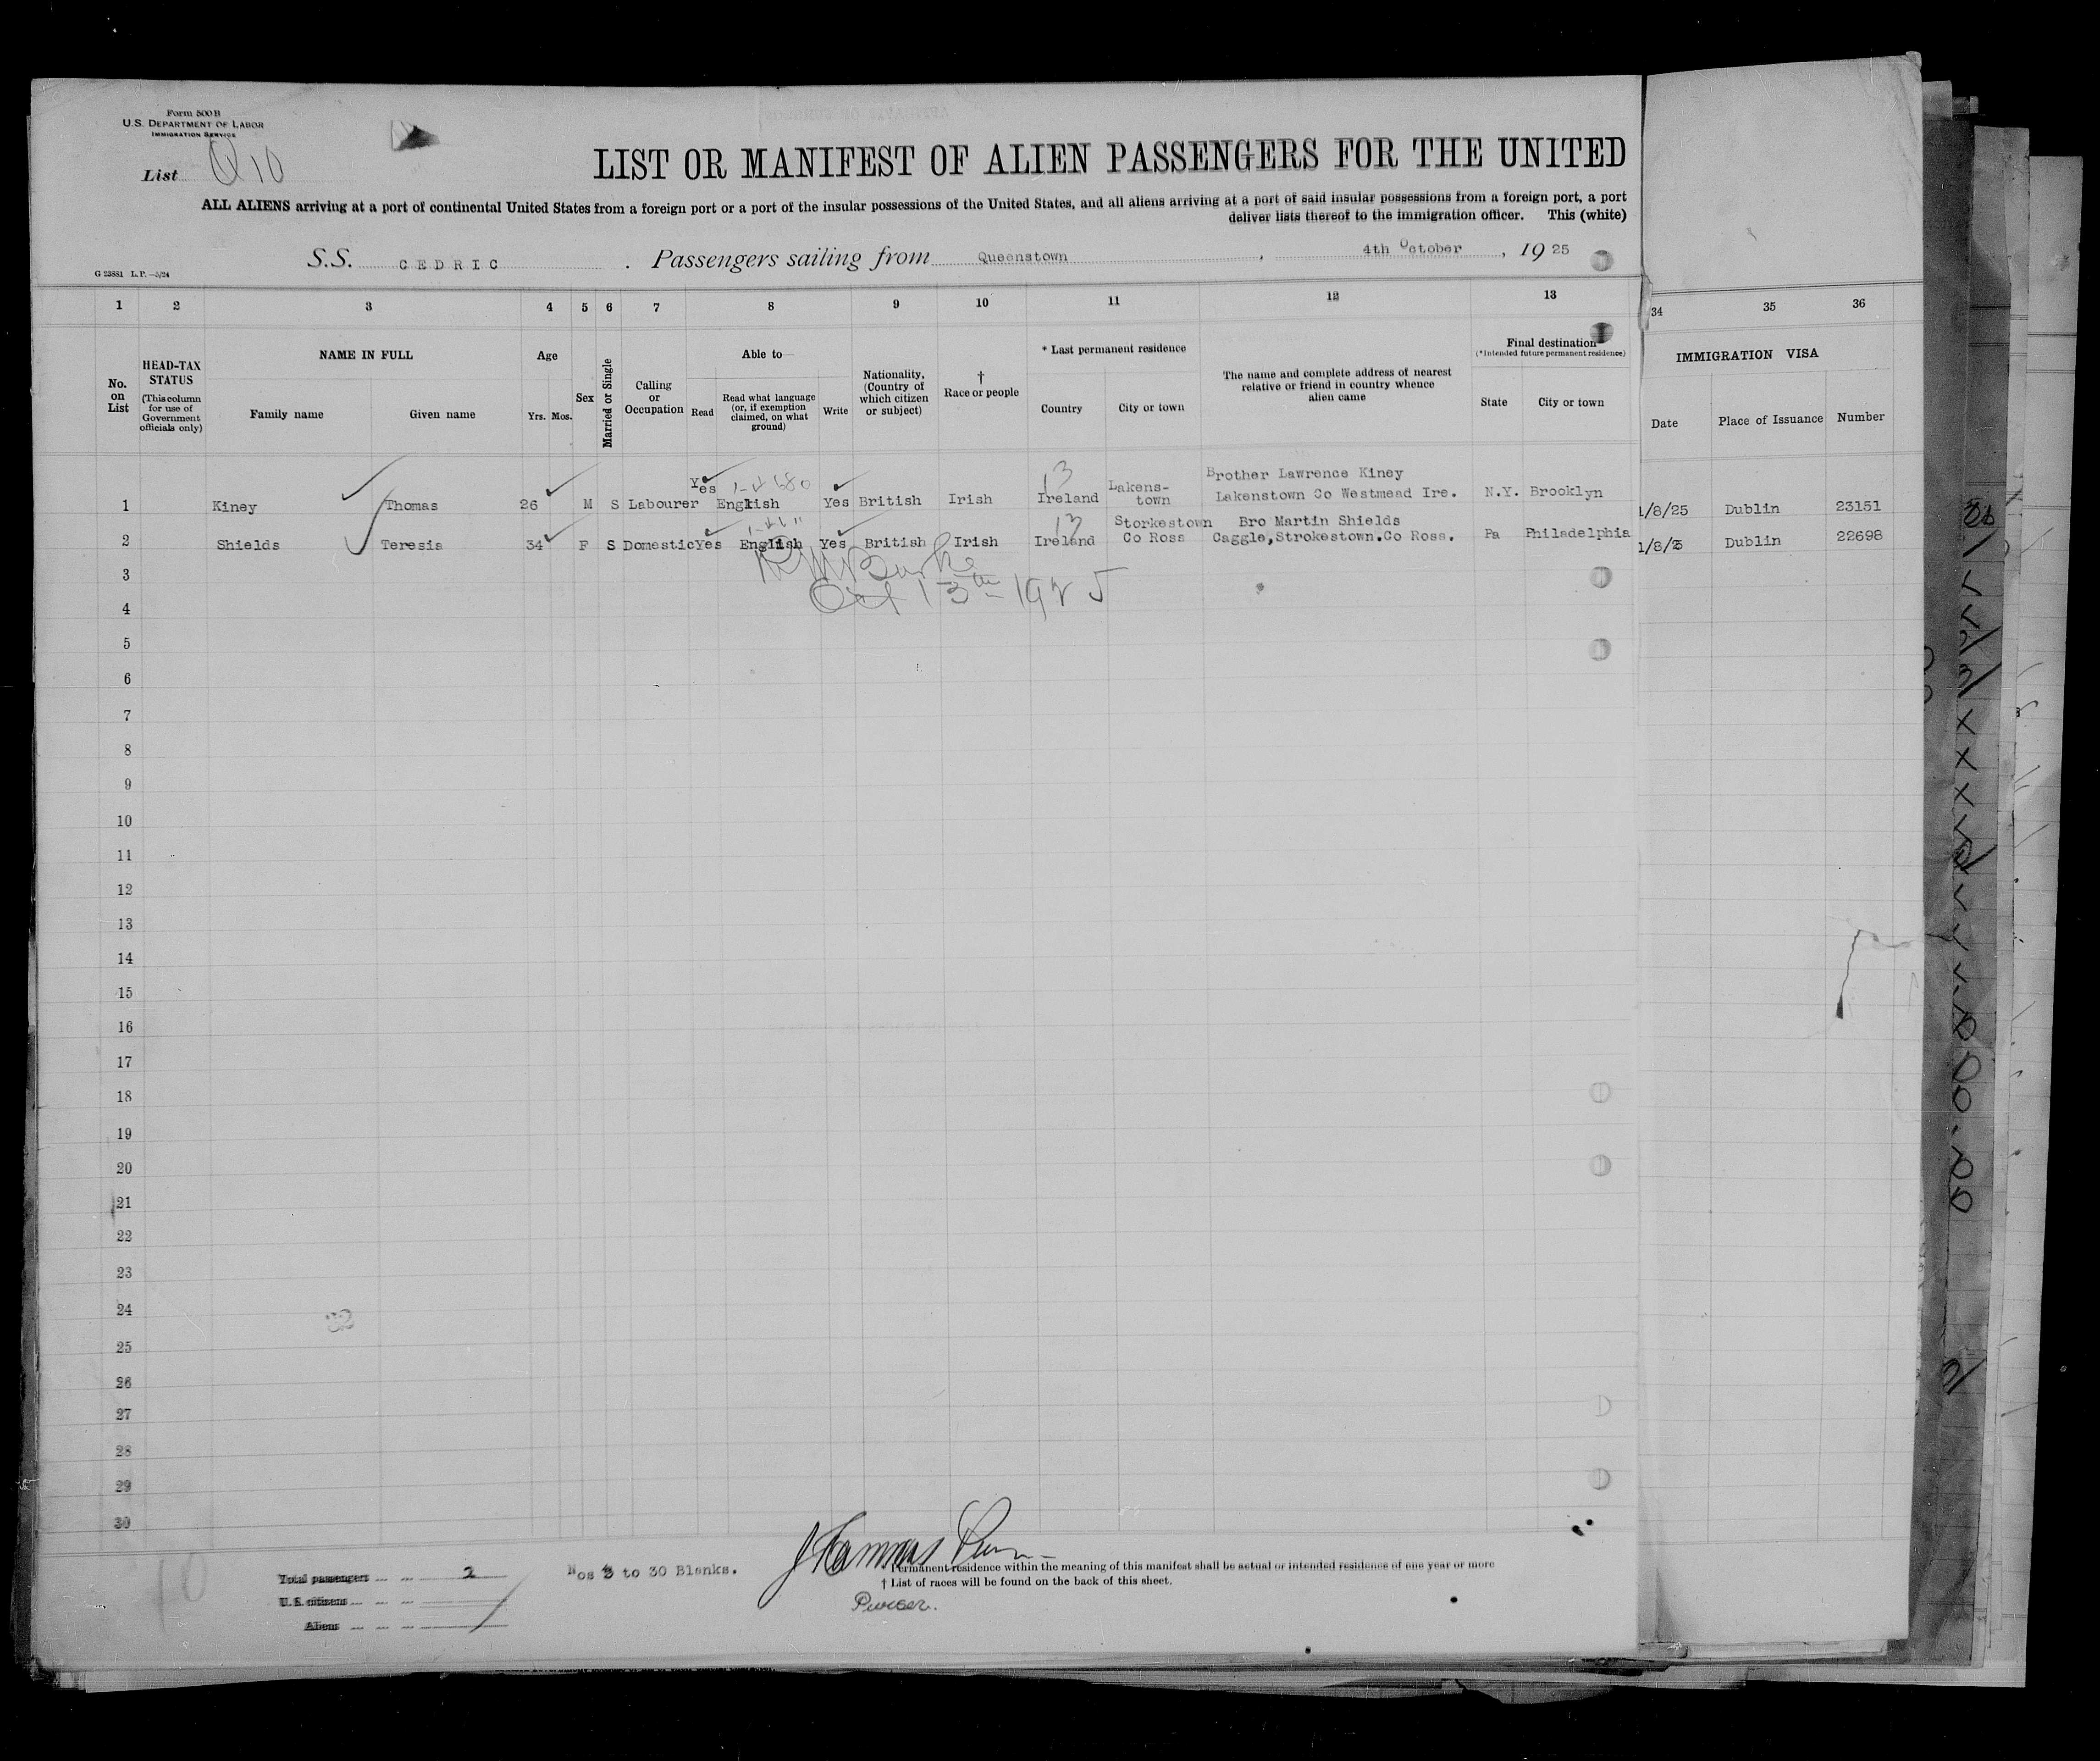 Form 500 B
U.S. DEPARTMENT OF LABOR
IMMIGRATION SERVICE
List Q 10
LIST OR MANIFEST OF ALIEN PASSENGERS FOR THE UNITED
ALL ALIENS arriving at a port of continental United States from a foreign port or a port of the insular possessions of the United States, and all aliens arriving at a port of said insular possessions from a foreign port, a port
deliver lists thereof to the immigration officer. This (white)
S.S. CEDRIC. Passengers sailing from Queenstown, 4th October, 1925
G 23881 L.P.—3/24
1 2 3 4 5 6 7 8 9 10 11 12 13 34 35 36
No. on List
HEAD-TAX STATUS
(This column for use of Government officials only)
NAME IN FULL
Family name Given name
Age
Yrs. Mos.
Sex
Married or Single
Calling or Occupation
Able to
Read
Read what language (or, if exemption claimed, on what ground)
Write
Nationality, (Country of which citizen or subject)
† Race or people
* Last permanent residence
Country City or town
The name and complete address of nearest relative or friend in country whence alien came
Final destination
(*Intended future permanent residence)
State City or town
IMMIGRATION VISA
Date Place of Issuance Number
1 Kiney Thomas 26 M S Labourer Yes English Yes British Irish 13 Ireland Lakens-town Brother Lawrence Kiney Lakenstown Co Westmead Ire. N.Y. Brooklyn 1/8/25 Dublin 23151
2 Shields Teresia 34 F S Domestic Yes English Yes British Irish 13 Ireland Storkestown Co Ross Bro Martin Shields Caggle,Strokestown.Co Ross. Pa Philadelphia Dublin 22698
3
Oct 13th 1925
4
5
6
7
8
9
10
11
12
13
14
15
16
17
18
19
20
21
22
23
24
25
26
27
28
29
30
Total passengers 2
U.S. citizens
Aliens
Nos 3 to 30 Blanks.
* Permanent residence within the meaning of this manifest shall be actual or intended residence of one year or more
† List of races will be found on the back of this sheet.
Purser.